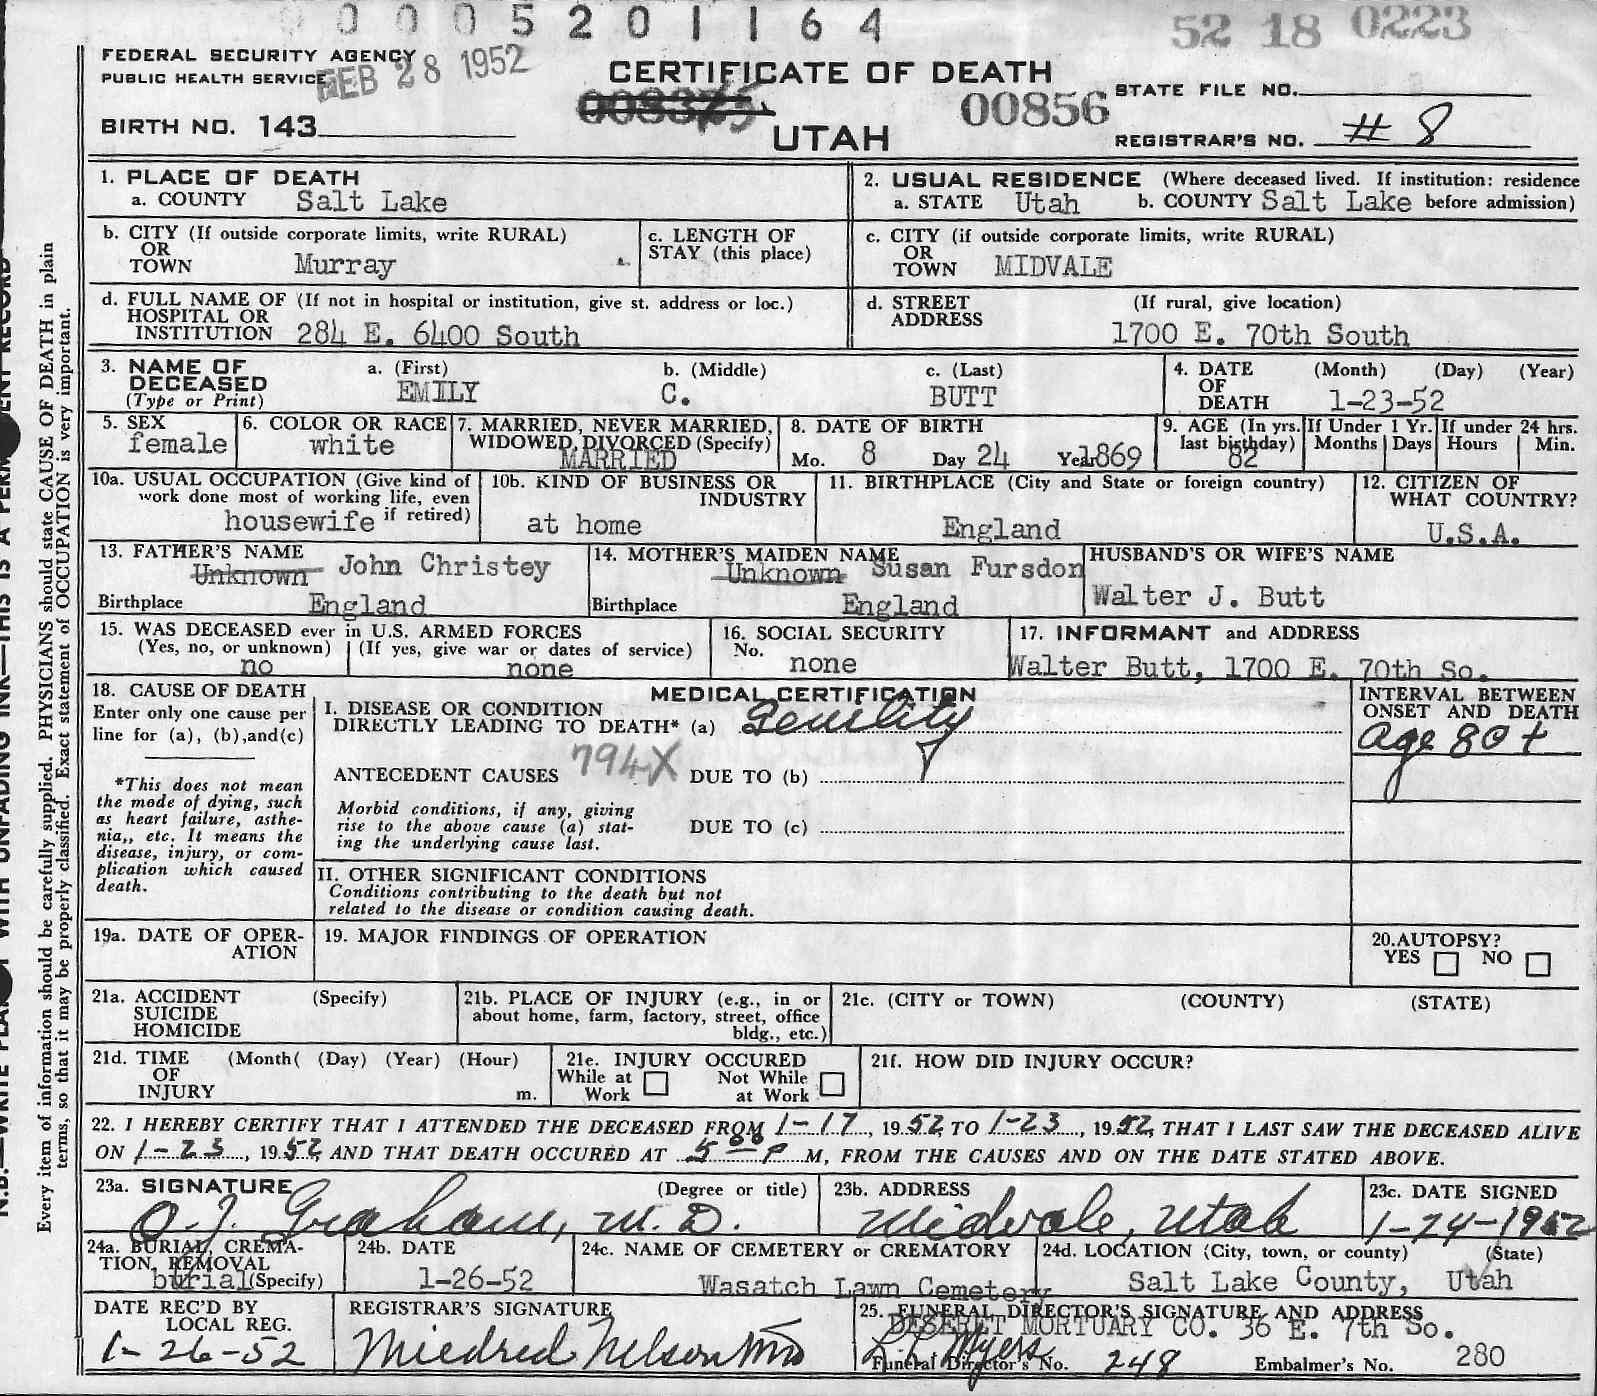 0 0 0 5 2 0 1 1 6 4
52 18 0223
FEDERAL SECURITY AGENCY
PUBLIC HEALTH SERVICE
FEB 28 1952
CERTIFICATE OF DEATH
00856
STATE FILE NO.
BIRTH NO. 143
UTAH
REGISTRAR'S NO. # 8
1. PLACE OF DEATH
a. COUNTY Salt Lake
2. USUAL RESIDENCE (Where deceased lived. If institution: residence
a. STATE Utah b. COUNTY Salt Lake before admission)
b. CITY (If outside corporate limits, write RURAL)
OR
TOWN Murray
c. LENGTH OF
STAY (this place)
c. CITY (if outside corporate limits, write RURAL)
OR
TOWN MIDVALE
d. FULL NAME OF (If not in hospital or institution, give st. address or loc.)
HOSPITAL OR
INSTITUTION 284 E. 6400 South
d. STREET (If rural, give location)
ADDRESS
1700 E. 70th South
3. NAME OF
DECEASED
(Type or Print)
a. (First)
EMILY
b. (Middle)
C.
c. (Last)
BUTT
4. DATE (Month) (Day) (Year)
OF
DEATH 1-23-52
5. SEX
female
6. COLOR OR RACE
white
7. MARRIED, NEVER MARRIED,
WIDOWED, DIVORCED (Specify)
MARRIED
8. DATE OF BIRTH
Mo. 8 Day 24 Year 1869
9. AGE (In yrs.
last birthday)
82
If Under 1 Yr.
Months Days
If under 24 hrs.
Hours Min.
10a. USUAL OCCUPATION (Give kind of
work done most of working life, even
housewife if retired)
10b. KIND OF BUSINESS OR
INDUSTRY
at home
11. BIRTHPLACE (City and State or foreign country)
England
12. CITIZEN OF
WHAT COUNTRY?
U.S.A.
13. FATHER'S NAME
Unknown John Christey
Birthplace England
14. MOTHER'S MAIDEN NAME
Unknown Susan Fursdon
Birthplace England
HUSBAND'S OR WIFE'S NAME
Walter J. Butt
15. WAS DECEASED ever in U.S. ARMED FORCES
(Yes, no, or unknown) (If yes, give war or dates of service)
no none
16. SOCIAL SECURITY
No.
none
17. INFORMANT and ADDRESS
Walter Butt, 1700 E. 70th So.
18. CAUSE OF DEATH
Enter only one cause per
line for (a), (b),and(c)
*This does not mean
the mode of dying, such
as heart failure, asthe-
nia,, etc. It means the
disease, injury, or com-
plication which caused
death.
MEDICAL CERTIFICATION
I. DISEASE OR CONDITION
DIRECTLY LEADING TO DEATH* (a) Senility
ANTECEDENT CAUSES 794X DUE TO (b)
Morbid conditions, if any, giving
rise to the above cause (a) stat-
ing the underlying cause last.
DUE TO (c)
II. OTHER SIGNIFICANT CONDITIONS
Conditions contributing to the death but not
related to the disease or condition causing death.
INTERVAL BETWEEN
ONSET AND DEATH
Age 80+
19a. DATE OF OPER-
ATION
19. MAJOR FINDINGS OF OPERATION
20.AUTOPSY?
YES NO
21a. ACCIDENT (Specify)
SUICIDE
HOMICIDE
21b. PLACE OF INJURY (e.g., in or
about home, farm, factory, street, office
bldg., etc.)
21c. (CITY or TOWN) (COUNTY) (STATE)
21d. TIME (Month( (Day) (Year) (Hour)
OF
INJURY m.
21e. INJURY OCCURED
While at Not While
Work at Work
21f. HOW DID INJURY OCCUR?
22. I HEREBY CERTIFY THAT I ATTENDED THE DECEASED FROM 1-17, 1952, TO 1-23, 1952, THAT I LAST SAW THE DECEASED ALIVE
ON 1-23, 1952, AND THAT DEATH OCCURED AT 5 00 P M, FROM THE CAUSES AND ON THE DATE STATED ABOVE.
23a. SIGNATURE (Degree or title)
O.J. Graham, M.D.
23b. ADDRESS
Midvale, Utah
23c. DATE SIGNED
1-24-1952
24a. BURIAL, CREMA-
TION, REMOVAL
burial (Specify)
24b. DATE
1-26-52
24c. NAME OF CEMETERY or CREMATORY
Wasatch Lawn Cemetery
24d. LOCATION (City, town, or county) (State)
Salt Lake County, Utah
DATE REC'D BY
LOCAL REG.
1-26-52
REGISTRAR'S SIGNATURE
25. FUNERAL DIRECTOR'S SIGNATURE AND ADDRESS
DESERET MORTUARY CO. 36 E. 7th So.
Myers
Funeral Director's No. 248 Embalmer's No. 280
Every item of information should be carefully supplied. PHYSICIANS should state CAUSE OF DEATH in plain
terms, so that it may be properly classified. Exact statement of OCCUPATION is very important.